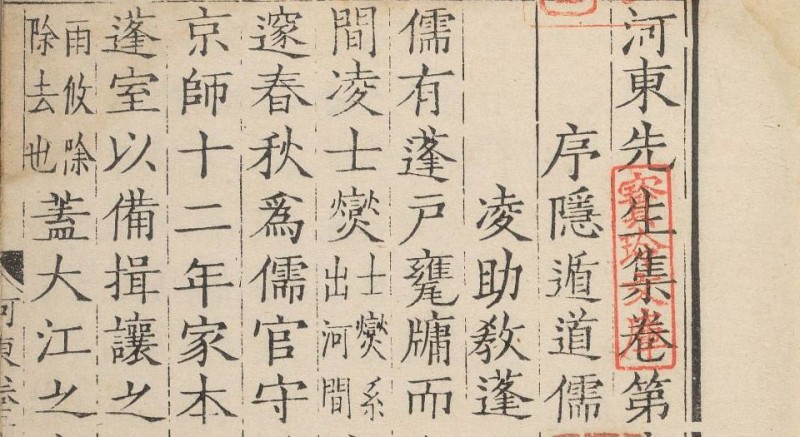 河東先生集卷第
序隱遁道儒
凌助教蓬
儒有蓬戶甕牖而
間凌士燮士燮系出河間
邃春秋爲儒官守
京師十二年家本
蓬室以備揖讓之
雨攸除除去也蓋大江之
河東